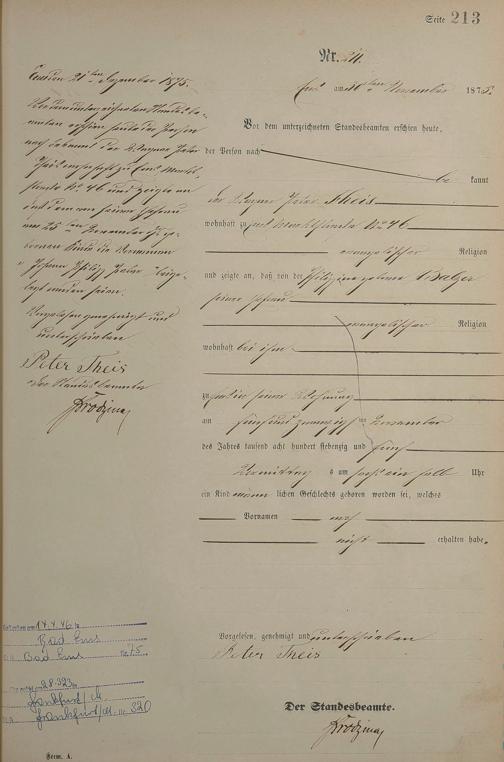 Seite 213
Nr. 211.
Ems am 30ten November 1875.
Vor dem unterzeichneten Standesbeamten erschien heute,
der Person nach
be kannt
der Peter Theis
wohnhaft zu Ems No 46
evangelischer Religion
und zeigte an, daß von der Philippine geborene Balzer
seiner Ehefrau
evangelischer Religion
wohnhaft bei ihm
zu Ems in seiner Wohnung
am fünf und zwanzigsten November
des Jahres tausend acht hundert siebenzig und fünf
Vormittags um sechs ein halb Uhr
ein Kind männ lichen Geschlechts geboren worden sei, welches
Vornamen noch
nicht erhalten habe.
Vorgelesen, genehmigt und unterschrieben
Peter Theis
Der Standesbeamte.
Ems den 21ten Dezember 1875.
Vor dem unterzeichneten Standesbe-
amten erschien heute der Person
nach bekannt der Peter
Theis zu Ems
No 46 und zeigte an
daß dem von seiner Ehefrau
am 25ten November ge-
borenen Kinde die Vornamen
"Johann Philipp Peter" beige-
legt worden seien.
Vorgelesen genehmigt und
unterschrieben
Peter Theis
Der Standesbeamte
17.4.46
Bad Ems
Bad Ems Nr. 75
28.323
Frankfurt/M.
Frankfurt/M. Nr. 320
Form. A.